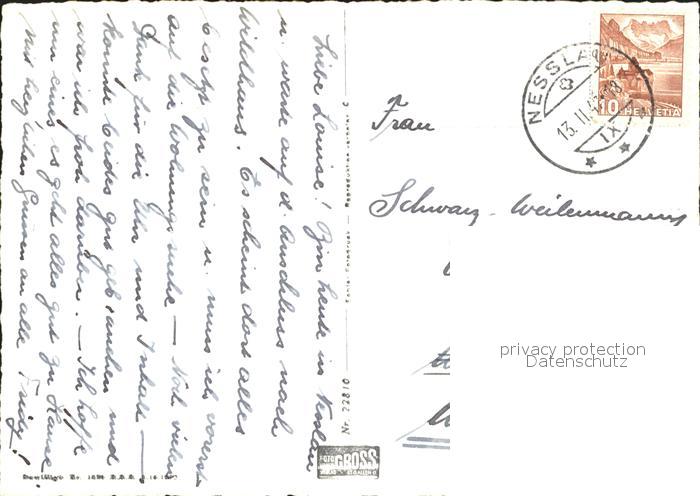 Liebe Louise! Bin heute in Nesslau
u. warte auf d. Anschluss nach
Wildhaus. Es scheint dort alles
besetzt zu sein u. muss ich vorerst
auf die Wohnungssuche — Noch vielen
Dank für die Uhr und Inhalt —
konnte beides gut gebrauchen und
war ich froh darüber. — Ich hoffe
nur eines es geht alles gut zu Hause
mit herzlichen Grüssen an alle
Frau
Schwarz-Weilenmann
NESSLAU
13. II.
XI
10 HELVETIA
Nr. 22810
FOTO GROSS
privacy protection
Datenschutz